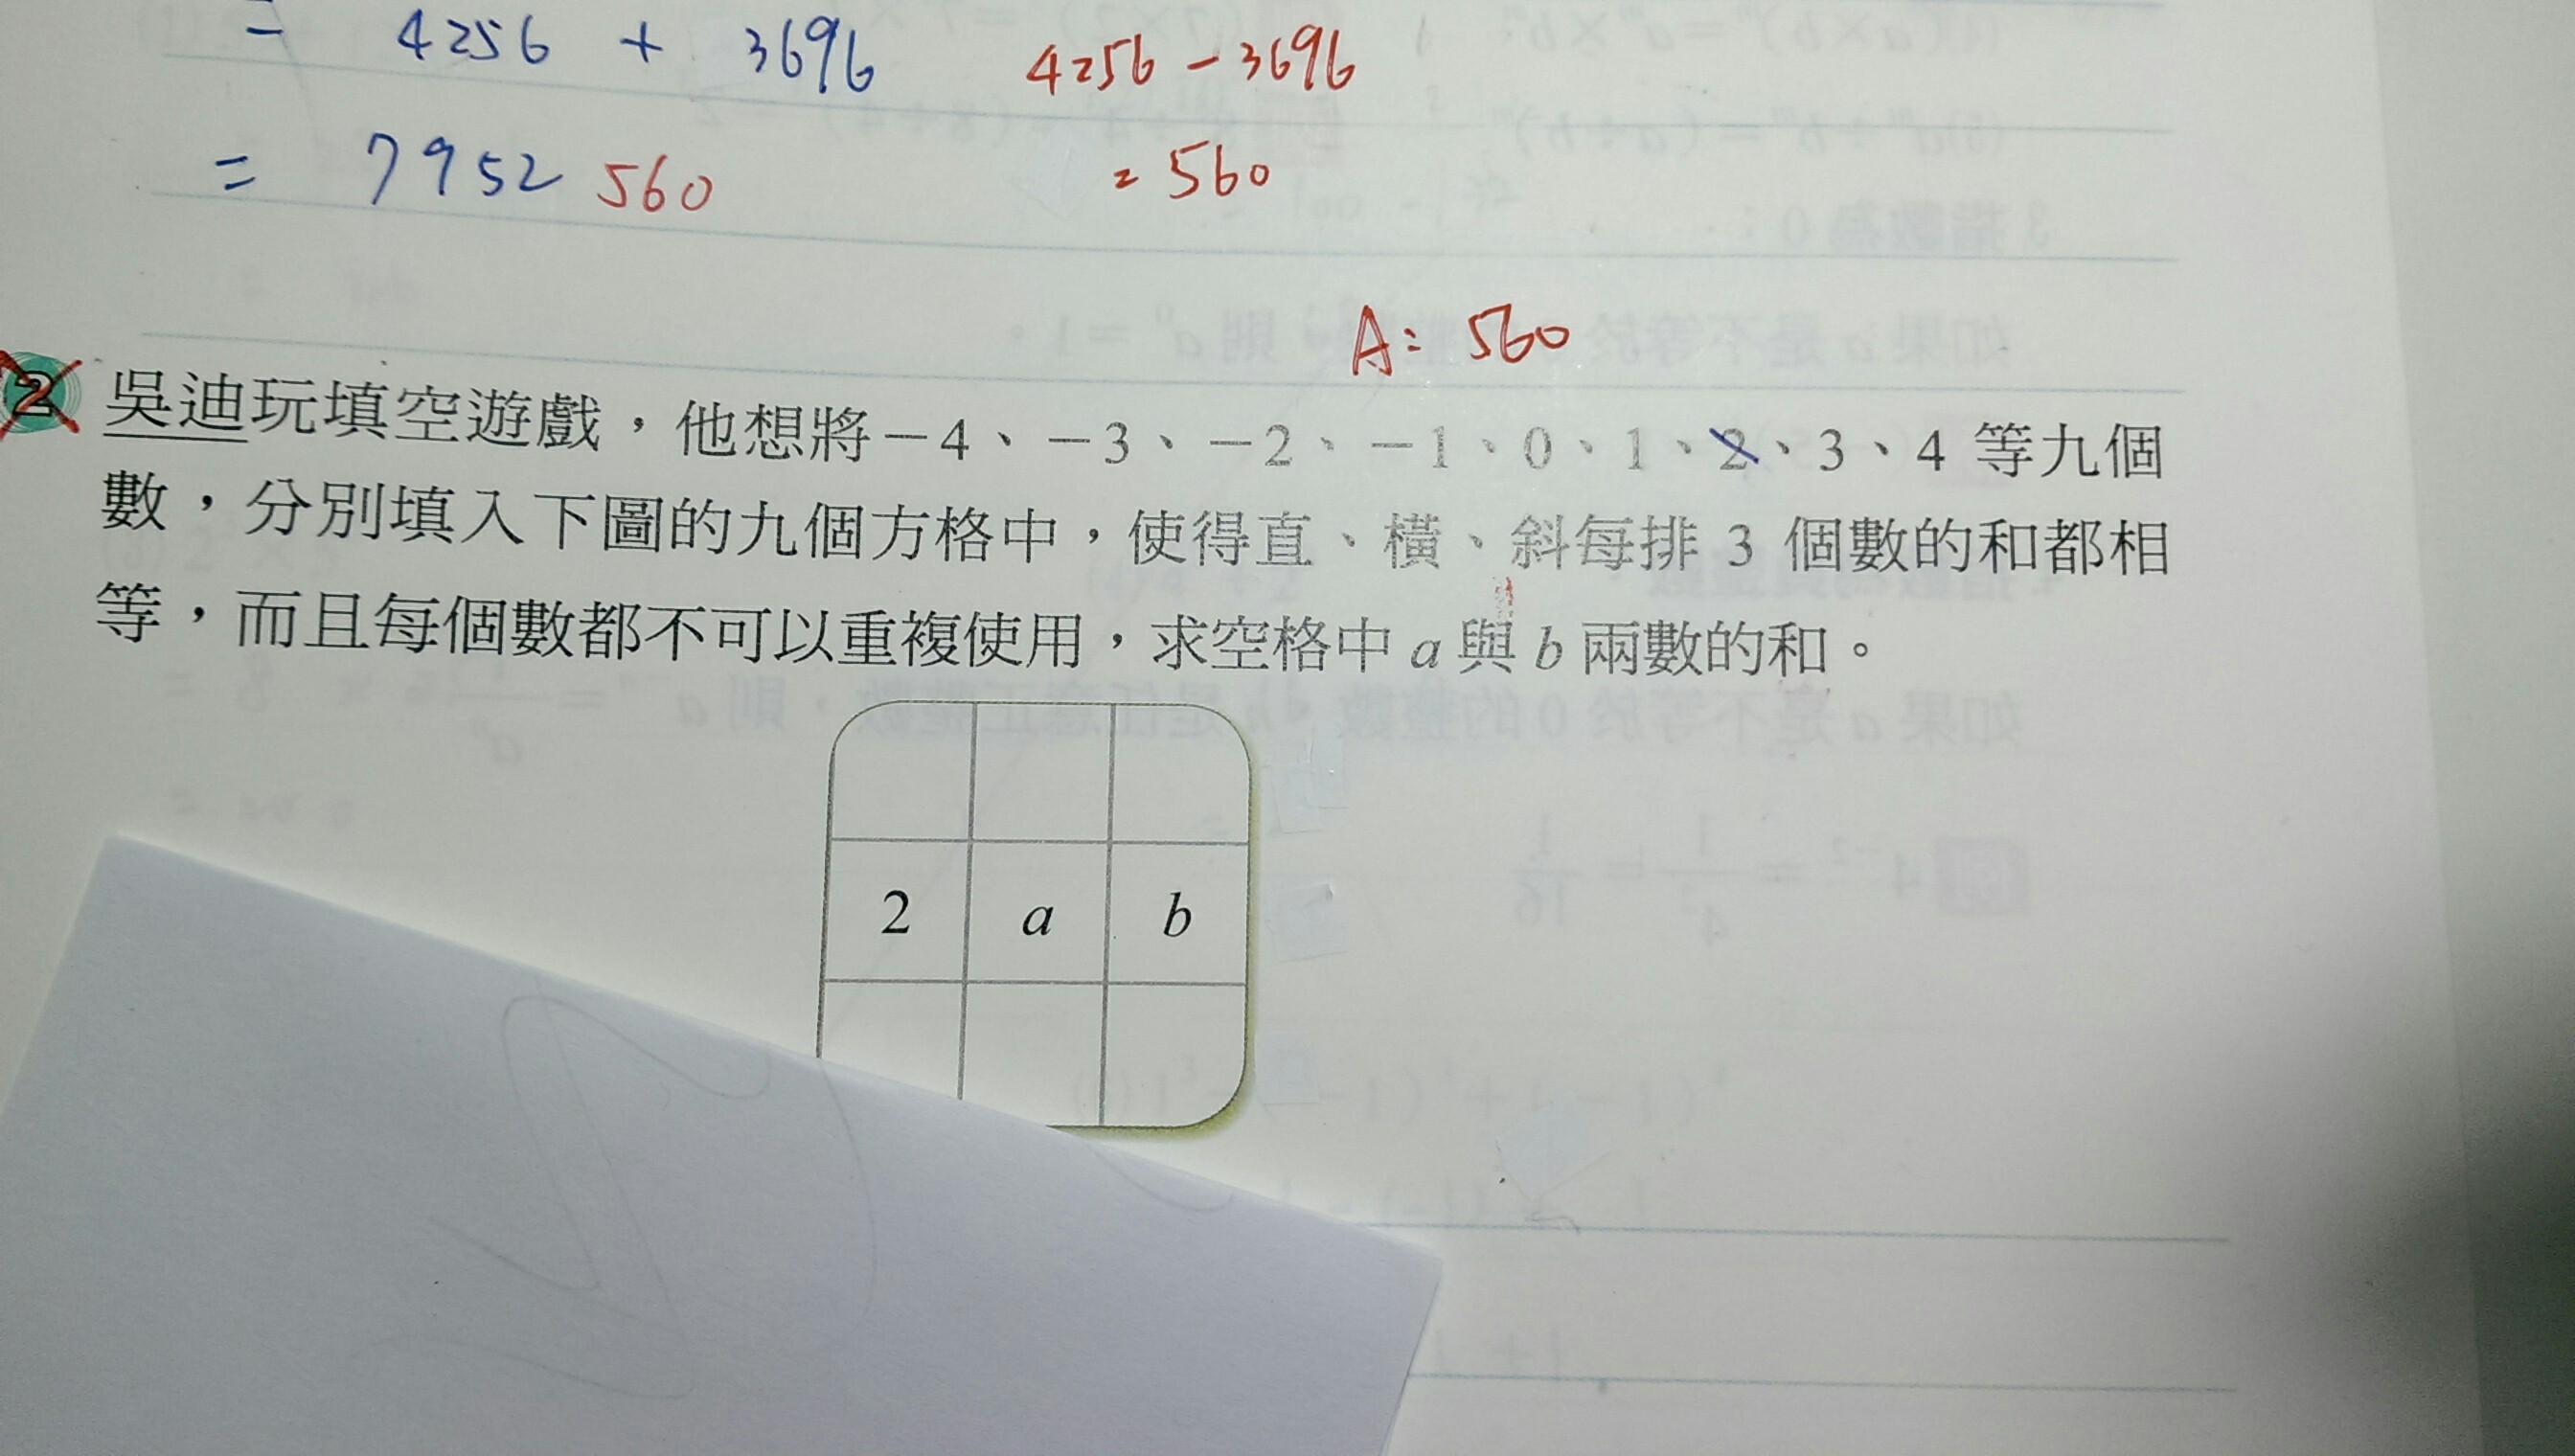 = 4256 + 3696 4256 - 3696
= 7952 560 = 560
A: 560
2 吳迪玩填空遊戲，他想將－4、－3、－2、－1、0、1、2、3、4 等九個
數，分別填入下圖的九個方格中，使得直、橫、斜每排 3 個數的和都相
等，而且每個數都不可以重複使用，求空格中 a 與 b 兩數的和。
2 a b